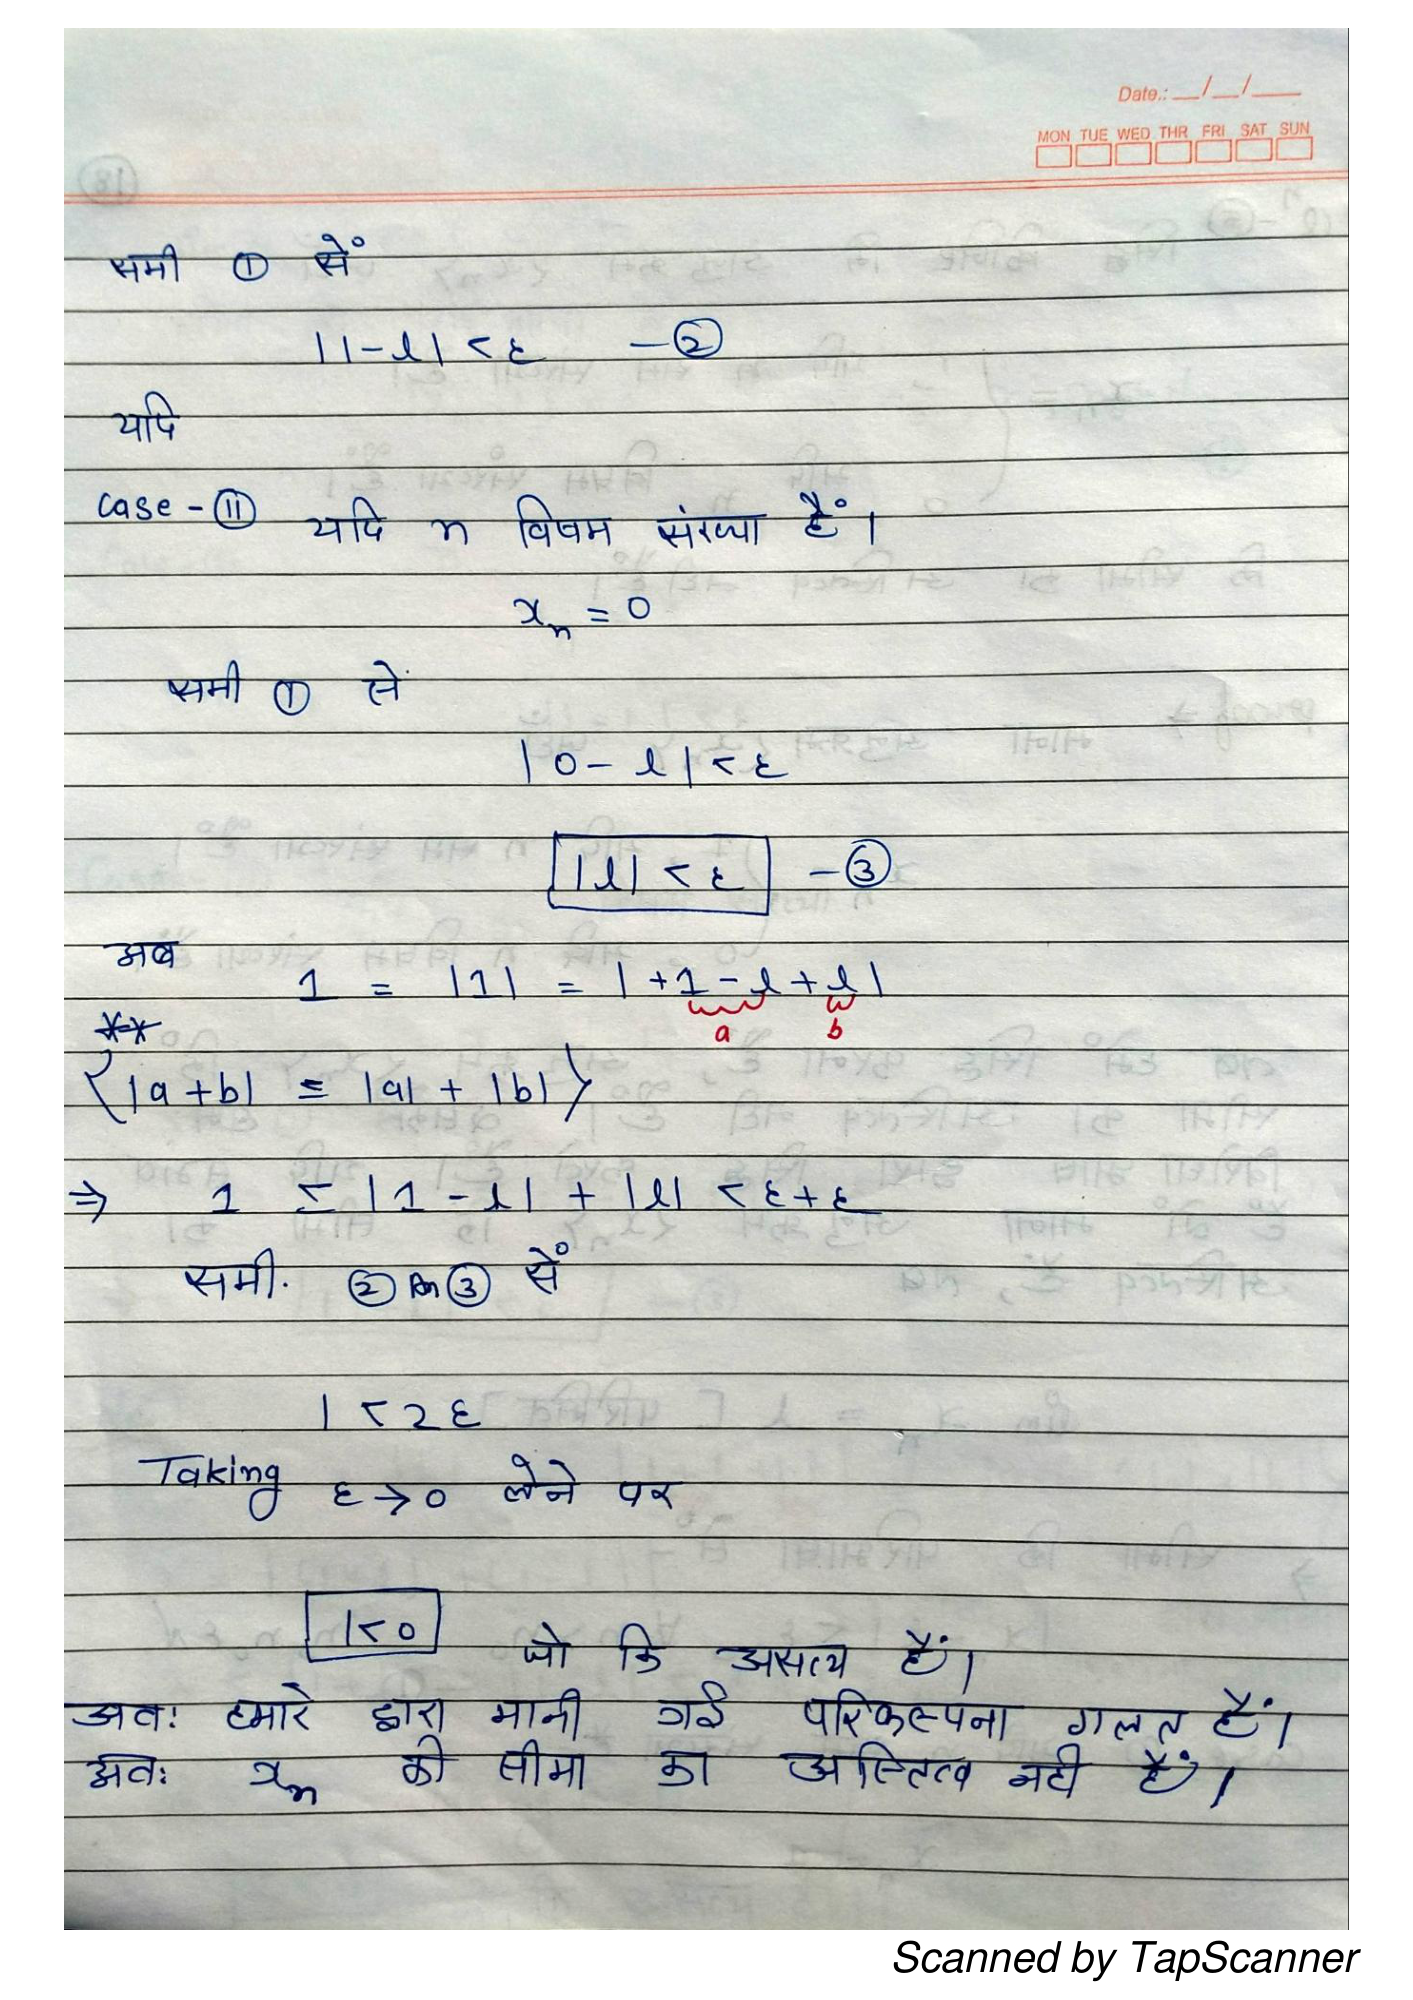 Date.: __/__/____
MON TUE WED THR FRI SAT SUN
समी ① सें
|1-l| < ε —②
यदि
Case - ⑪ यदि n विषम संख्या हैं।
xₙ = 0
समी ① से
|0 - l| < ε
|l| < ε —③
अब
1 = |1| = |+1 - l + l|
a b
**
{|a+b| ≤ |a| + |b|}
⇒ 1 ≤ |1 - l| + |l| < ε + ε
समी. ② ③ सें
1 < 2ε
Taking ε → 0 लेने पर
1 < 0 जो कि असत्य हैं।
अतः हमारे द्वारा मानी गई परिकल्पना गलत हैं।
अतः xₙ की सीमा का अस्तित्व नही हैं।
Scanned by TapScanner